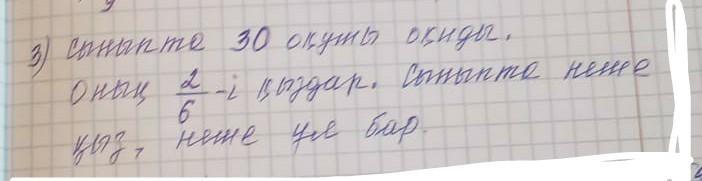 3) Сыныпта 30 оқушы оқиды.
Оның 2/6-і қыздар. Сыныпта неше
қыз, неше ұл бар.